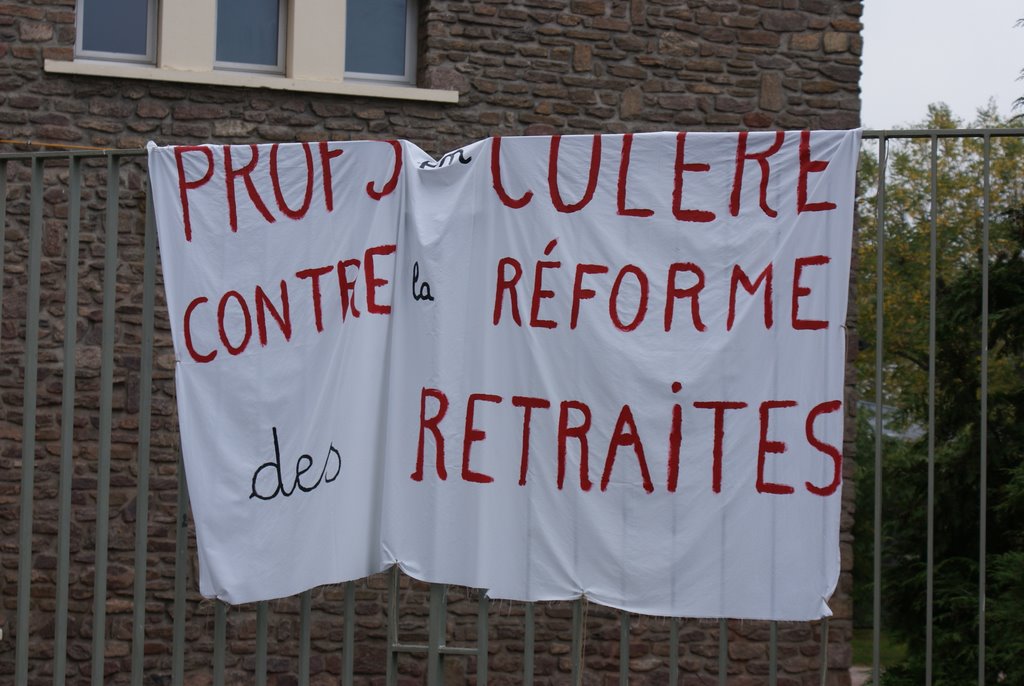 PROFS en COLERE
CONTRE la RÉFORME
des RETRAiTES